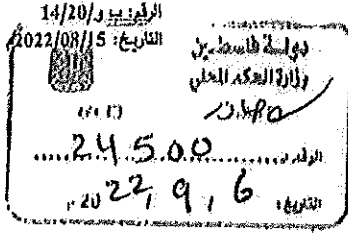 الرقم: و ب و/14/20
التاريخ: 2022/08/15
دولة فلسطين
وزارة الحكم المحلي
الرقم: 24500
التاريخ: 6 , 9 , 2022 م